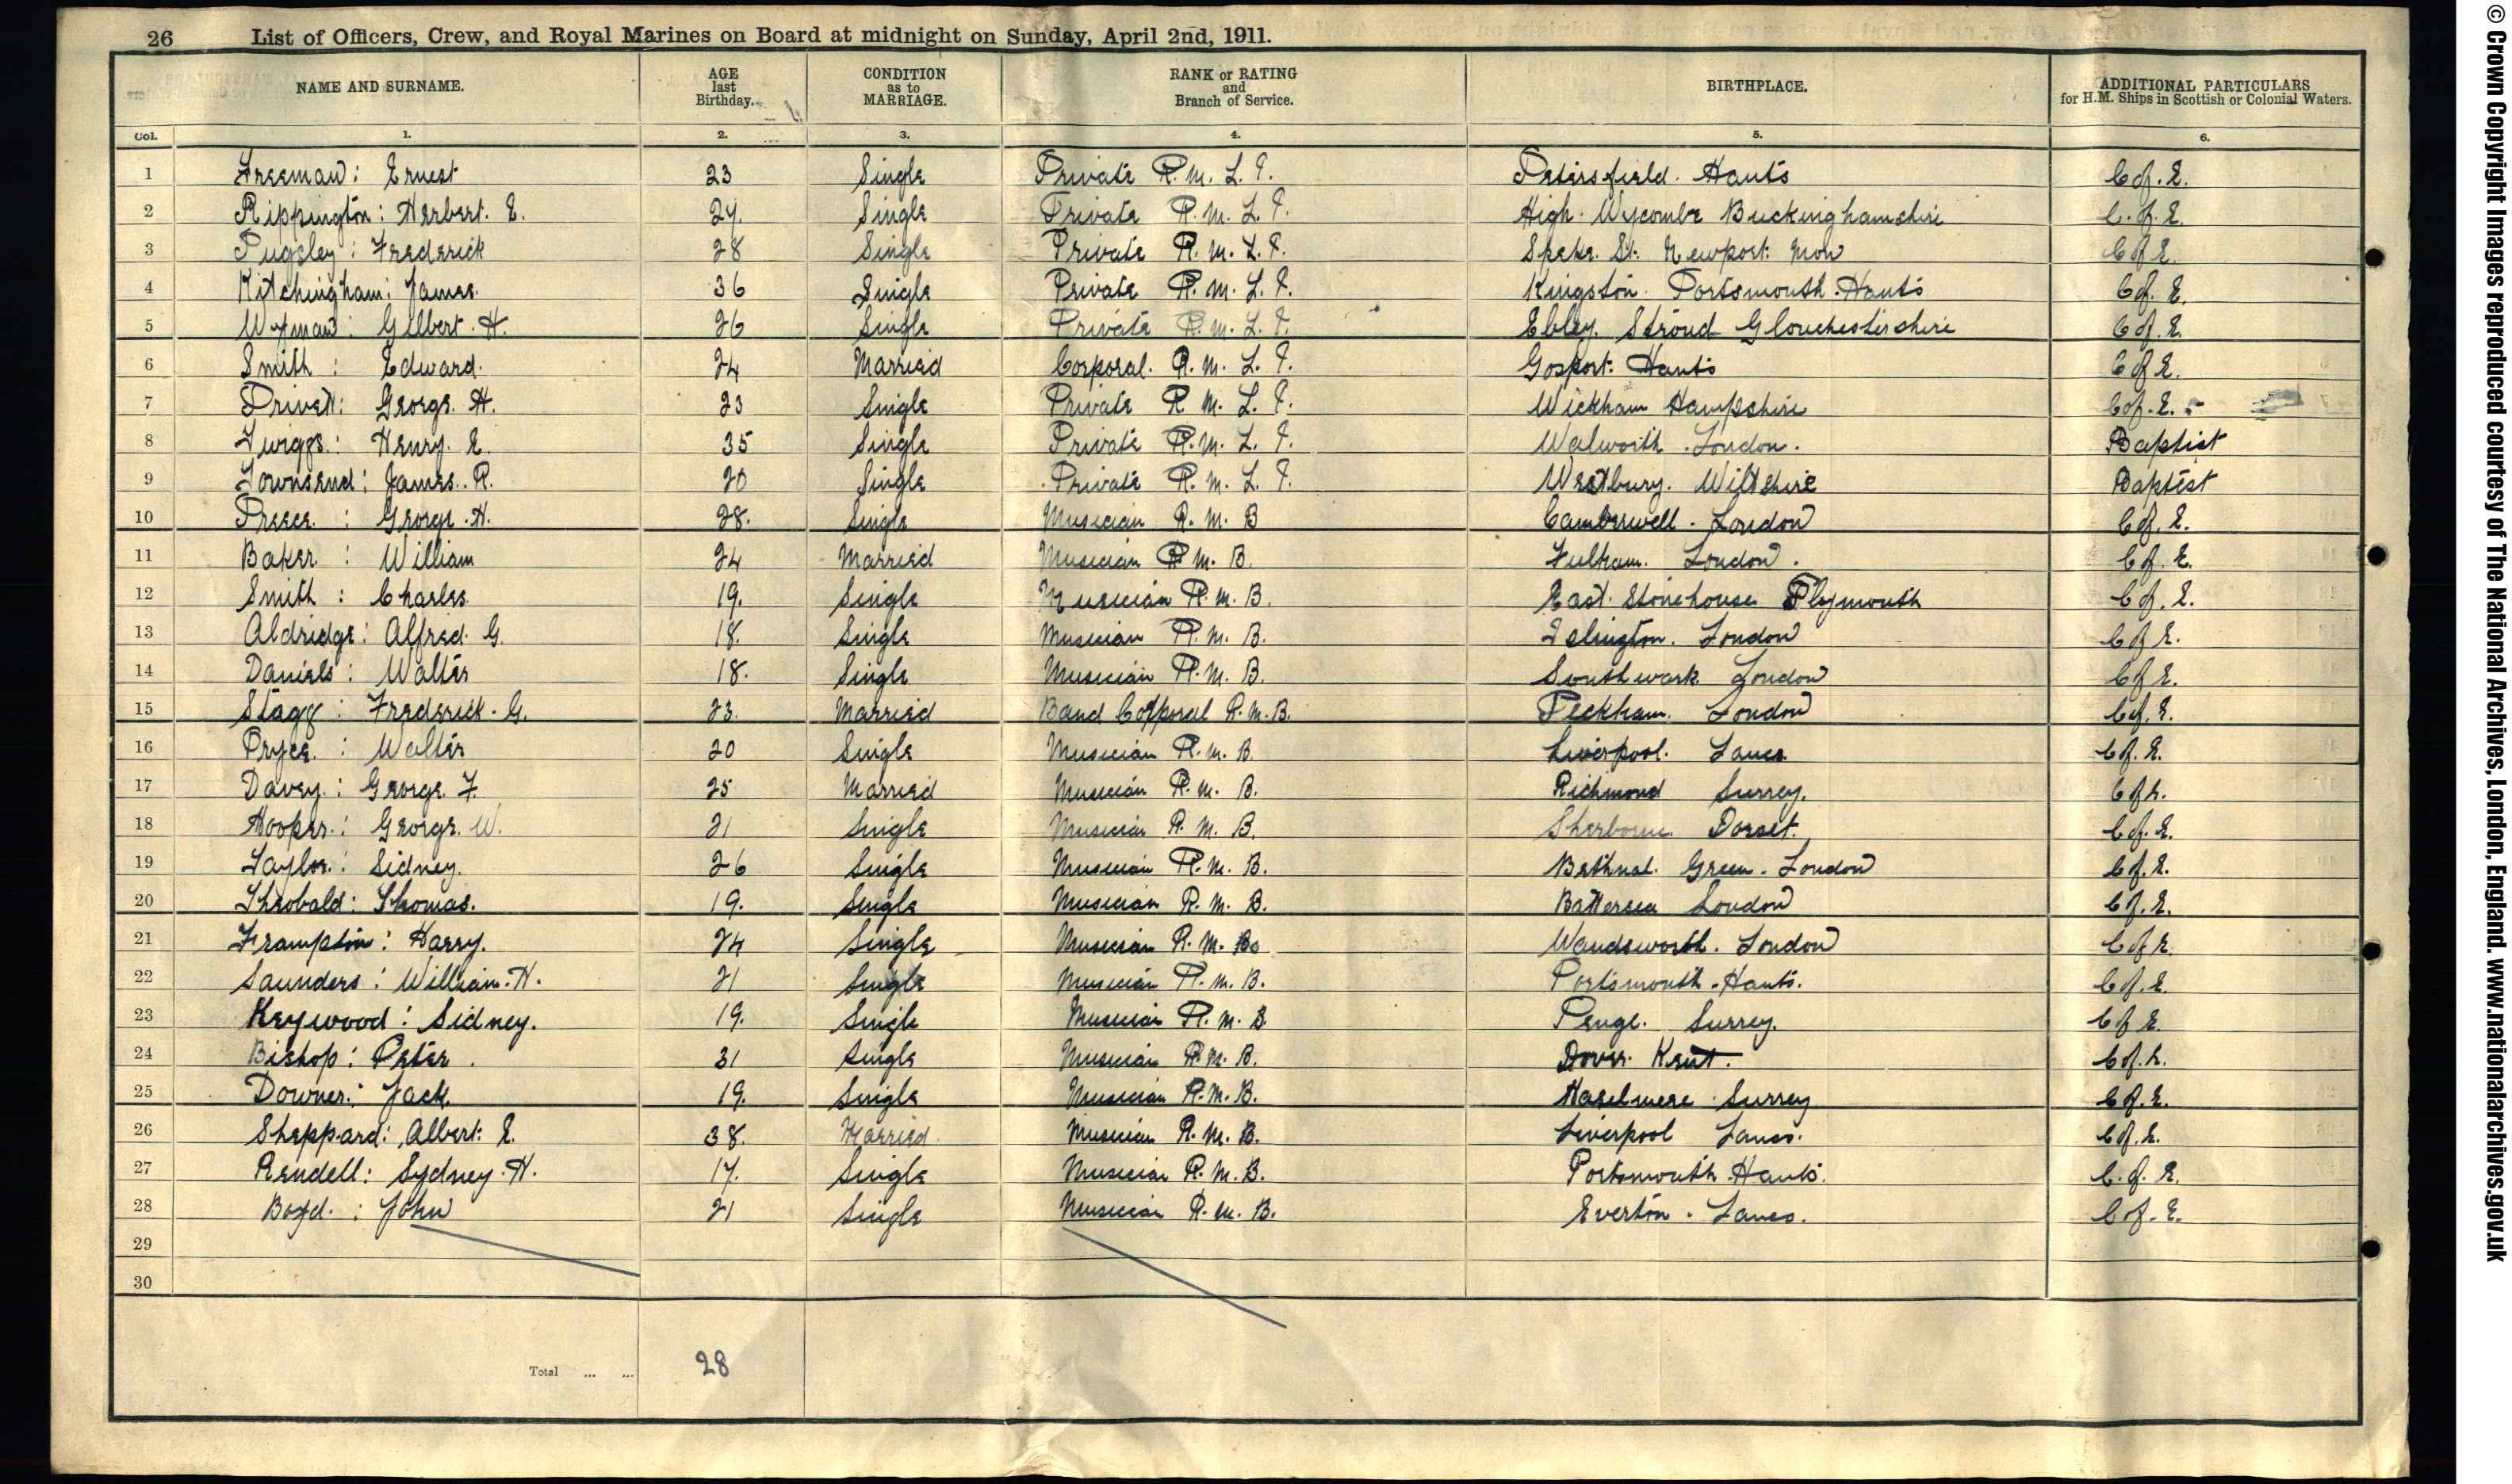 26 List of Officers, Crew, and Royal Marines on Board at midnight on Sunday, April 2nd, 1911.
NAME AND SURNAME. AGE last Birthday. CONDITION as to MARRIAGE. RANK or RATING and Branch of Service. BIRTHPLACE. ADDITIONAL PARTICULARS for H.M. Ships in Scottish or Colonial Waters.
Col. 1. 2. 3. 4. 5. 6.
1 Freeman: Ernest 23 Single Private R. M. L. I. Petersfield. Hants C of. E.
2 Rippington: Herbert. E. 24. Single Private R. M. L. I. High. Wycombe Buckinghamshire C. of. E.
3 Pugsley: Frederick 28 Single Private R. M. L. I. Speke. St. Newport. Mon C of E.
4 Kitchingham: James. 36 Single Private R. M. L. I. Kingston. Portsmouth. Hants C of. E.
5 Wyman: Gilbert. H. 26 Single Private R. M. L. I. Ebley. Stroud Glouchestershire C of. E.
6 Smith: Edward. 24 Married Corporal. R. M. L. I. Gosport. Hants C of E.
7 Privett: George. H. 23 Single Private R M. L. I. Wickham Hampshire C of. E.
8 Twiggs: Henry. E. 35 Single Private R. M. L. I. Walworth. London. Baptist
9 Townsend: James. R. 20 Single Private R. M. L. I. Westbury. Wiltshire Baptist
10 Preece: George. H. 28. Single Musician R. M. B Camberwell. London C of. E.
11 Baker: William 24 Married Musician R M. B. Fulham. London. C of. E.
12 Smith: Charles 19. Single Musician R. M. B. East. Stonehouse Plymouth C of. E.
13 Aldridge: Alfred. G. 18. Single Musician R. M. B. Islington. London C of E.
14 Daniels: Walter 18. Single Musician R. M. B. Southwark London C of E.
15 Stagg: Frederick. G. 23. Married Band Corporal R. M. B. Peckham. London C of. E.
16 Pryce: Walter 20 Single Musician R. M. B. Liverpool. Lancs C of. E.
17 Davey: George. F. 25 Married Musician R. M. B. Richmond Surrey. C of E.
18 Hooper: George. W. 21 Single Musician R. M. B. Sherborne Dorset. C of. E.
19 Taylor: Sidney. 26 Single Musician R. M. B. Bethnal. Green. London C of. E.
20 Theobald: Thomas. 19. Single Musician R. M. B. Battersea London C of. E.
21 Frampton: Harry. 24 Single Musician R. M. B. Wandsworth. London C of E.
22 Saunders: William. H. 21 Single Musician R. M. B. Portsmouth. Hants. C of. E.
23 Keywood: Sidney. 19. Single Musician R. M. B Penge. Surrey. C of E.
24 Bishop: Peter. 31 Single Musician R. M. B. Dover. Kent. C of. E.
25 Downer: Jack. 19. Single Musician R. M. B. Haselmere Surrey C of. E.
26 Sheppard: Albert. E. 38. Married Musician R. M. B. Liverpool Lancs. C of. E.
27 Rendell: Sydney. H. 17. Single Musician R. M. B. Portsmouth. Hants. C. of. E.
28 Boyd: John 21 Single Musician R. M. B. Everton. Lancs. C of. E.
29
30
Total ... ... 28
© Crown Copyright Images reproduced courtesy of The National Archives, London, England. www.nationalarchives.gov.uk